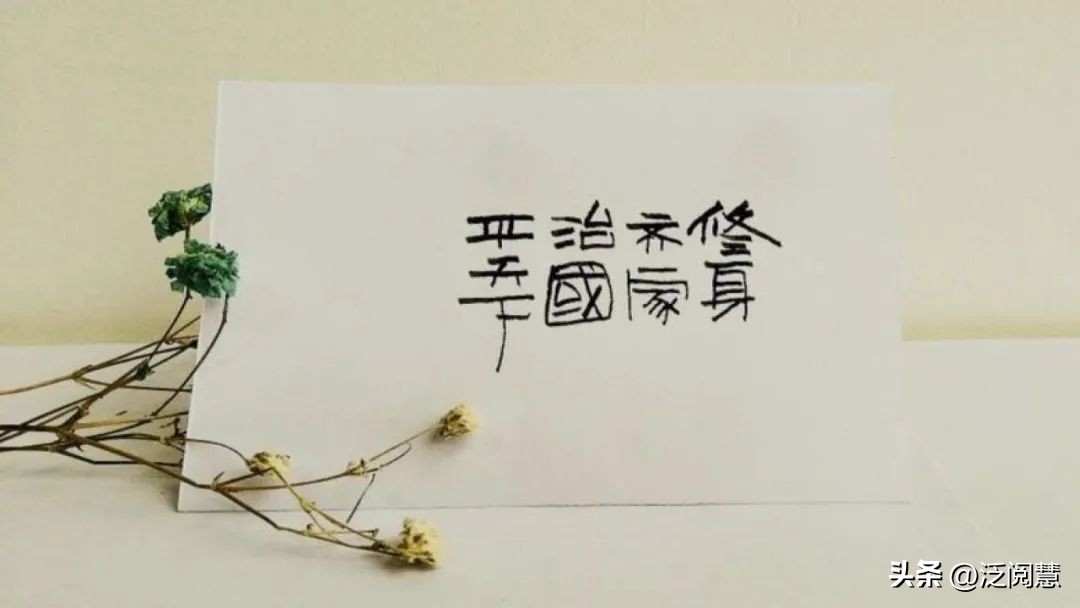 修身
齐家
治國
平天下
头条 @泛阅慧